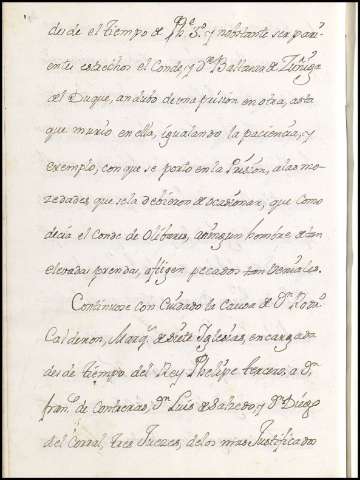 desde el tiempo de Phe. 3o. y nobstante ser pari
entes estrechos el Conde, y Dn. Baltasar de Zuñiga
del Duque, andubo de una prision en otra, asta
que murio en ella, igualando la paciencia, y
exemplo, con que se porto en la Prision, a las mo-
zedades que sela debieron de ocasionar, que como
decia el Conde de Olibares, aningun hombre de tan
elevadas prendas, afligen pecados tan Veniales.
Continuose con Cuidado la causa de Dn. Rodrio.
Calderon, Marqs. de Siete Iglesias, encargada
desde tiempo del Rey Phelipe tercero, a Dn.
Franco. de Contreras, Dn. Luis de Salzedo, y Dn. Diego
del Corral, tres Jueces, delos mas Justificados